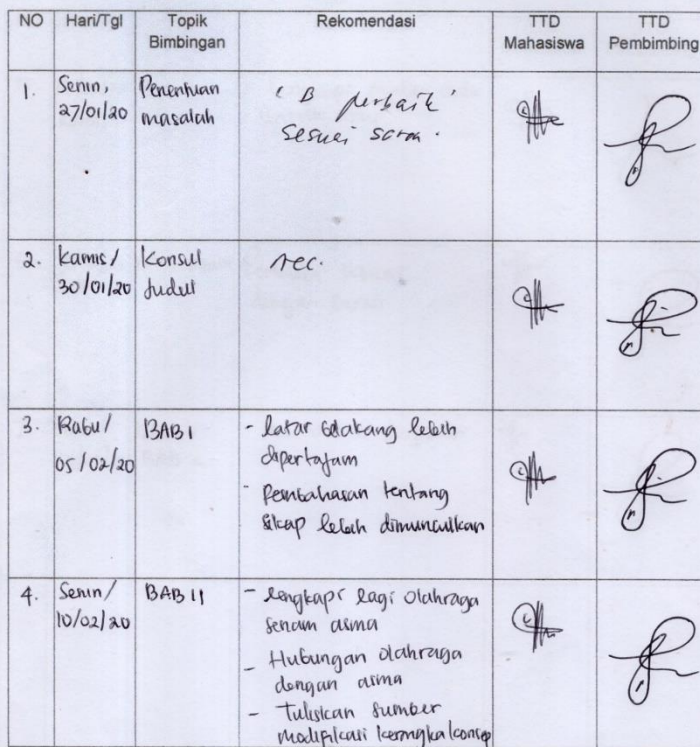 NO Hari/Tgl Topik Bimbingan Rekomendasi TTD Mahasiswa TTD Pembimbing
1. Senin, 27/01/20 Penentuan masalah
perbaik
sesuai saran.
2. Kamis/ 30/01/20 Konsul Judul
3. Rabu/ 05/02/20 BAB I
- latar belakang lebih
dipertajam
- Pembahasan tentang
sikap lebih dimunculkan
4. Senin/ 10/02/20 BAB II
- lengkapi lagi olahraga
senam asma
- Hubungan olahraga
dengan asma
- Tuliskan sumber
modifikasi kerangka konsep